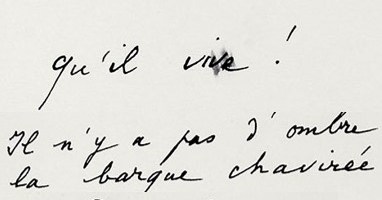 qu'il vive !
Il n'y a pas d'ombre
la barque chavirée